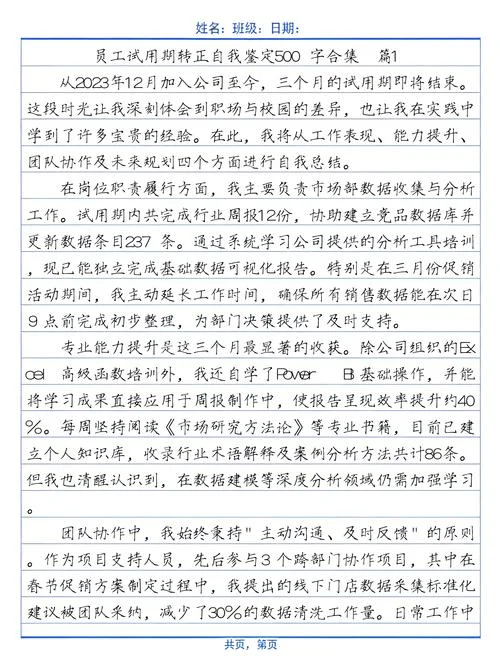 姓名：班级：日期：
员工试用期转正自我鉴定500 字合集 篇1
从2023年12月加入公司至今，三个月的试用期即将结束。
这段时光让我深刻体会到职场与校园的差异，也让我在实践中
学到了许多宝贵的经验。在此，我将从工作表现、能力提升、
团队协作及未来规划四个方面进行自我总结。
在岗位职责履行方面，我主要负责市场部数据收集与分析
工作。试用期内共完成行业周报12份，协助建立竞品数据库并
更新数据条目237 条。通过系统学习公司提供的分析工具培训
，现已能独立完成基础数据可视化报告。特别是在三月份促销
活动期间，我主动延长工作时间，确保所有销售数据能在次日
9 点前完成初步整理，为部门决策提供了及时支持。
专业能力提升是这三个月最显著的收获。除公司组织的Ex
cel 高级函数培训外，我还自学了Power BI 基础操作，并能
将学习成果直接应用于周报制作中，使报告呈现效率提升约40
%。每周坚持阅读《市场研究方法论》等专业书籍，目前已建
立个人知识库，收录行业术语解释及案例分析方法共计86条。
但我也清醒认识到，在数据建模等深度分析领域仍需加强学习
。
团队协作中，我始终秉持"主动沟通、及时反馈"的原则
。作为项目支持人员，先后参与3 个跨部门协作项目，其中在
春节促销方案制定过程中，我提出的线下门店数据采集标准化
建议被团队采纳，减少了30%的数据清洗工作量。日常工作中
共页，第页